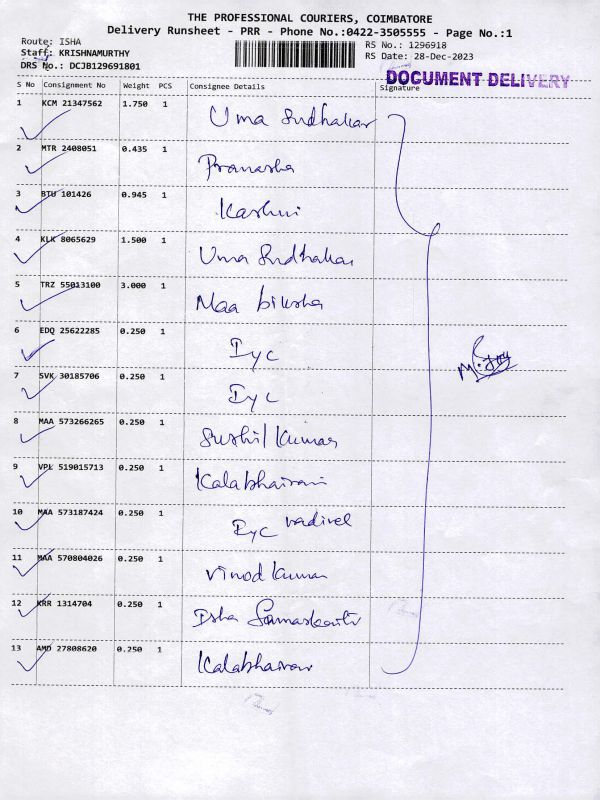 THE PROFESSIONAL COURIERS, COIMBATORE
Delivery Runsheet - PRR - Phone No.:0422-3505555 - Page No.:1
Route: ISHA
Staff: KRISHNAMURTHY
DRS No.: DCJB129691801
RS No.: 1296918
RS Date: 28-Dec-2023
DOCUMENT DELIVERY
S No Consignment No Weight PCS Consignee Details Signature
1 KCM 21347562 1.750 1 Uma Sudhakar
2 MTR 2408051 0.435 1
3 BTU 101426 0.945 1
4 KLK 8065629 1.500 1 Uma Sudhakar
5 TRZ 55013100 3.000 1 Maa biksha
6 EDQ 25622285 0.250 1 Iyc
7 SVK 30185706 0.250 1 Iyc
8 MAA 573266265 0.250 1 Sushil Kumar
9 VPL 519015713 0.250 1 Kalabhairavi
10 MAA 573187424 0.250 1 Iyc vadivel
11 MAA 570804026 0.250 1 Vinod Kumar
12 KRR 1314704 0.250 1 Isha Samaskriti
13 AMD 27808620 0.250 1 Kalabhairav